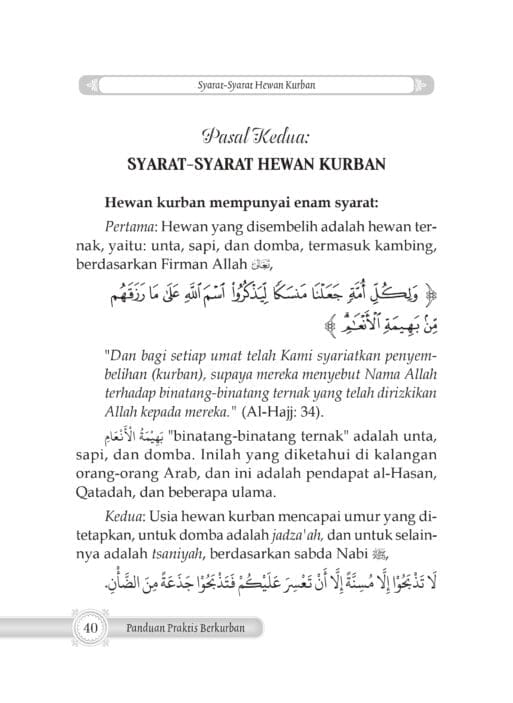 Syarat-Syarat Hewan Kurban
Pasal Kedua:
SYARAT-SYARAT HEWAN KURBAN
Hewan kurban mempunyai enam syarat:
Pertama: Hewan yang disembelih adalah hewan ter-
nak, yaitu: unta, sapi, dan domba, termasuk kambing,
berdasarkan Firman Allah تَعَالَى,
﴿ وَلِكُلِّ أُمَّةٍ جَعَلْنَا مَنسَكًا لِّيَذْكُرُوا۟ ٱسْمَ ٱللَّهِ عَلَىٰ مَا رَزَقَهُم
مِّنۢ بَهِيمَةِ ٱلْأَنْعَٰمِ ۗ ﴾
"Dan bagi setiap umat telah Kami syariatkan penyem-
belihan (kurban), supaya mereka menyebut Nama Allah
terhadap binatang-binatang ternak yang telah dirizkikan
Allah kepada mereka." (Al-Hajj: 34).
بَهِيْمَةُ الْأَنْعَامِ "binatang-binatang ternak" adalah unta,
sapi, dan domba. Inilah yang diketahui di kalangan
orang-orang Arab, dan ini adalah pendapat al-Hasan,
Qatadah, dan beberapa ulama.
Kedua: Usia hewan kurban mencapai umur yang di-
tetapkan, untuk domba adalah jadza'ah, dan untuk selain-
nya adalah tsaniyah, berdasarkan sabda Nabi ﷺ,
لَا تَذْبَحُوْا إِلَّا مُسِنَّةً إِلَّا أَنْ تَعْسِرَ عَلَيْكُمْ فَتَذْبَحُوْا جَذَعَةً مِنَ الضَّأْنِ.
40 Panduan Praktis Berkurban